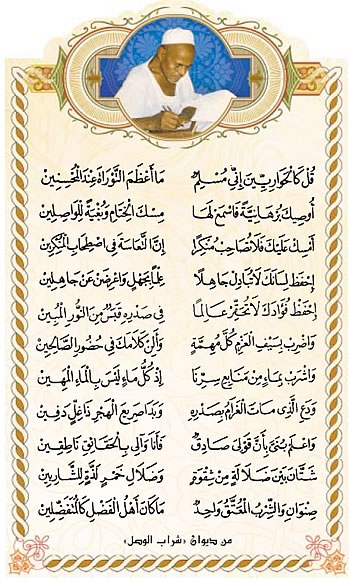 قُلْ كَالْحَوَارِيِّينَ إِنِّي مُسْلِمٌ مَا أَعْظَمَ التَّوْرَاةَ عِنْدَ الْمُحْسِنِينْ
أُوصِيكَ بُرْهَانِيَّةً فَاسْمَعْ لَهَا مِسْكَ الْخِتَامِ وَبُغْيَةً لِلْوَاصِلِينْ
أَمْسِكْ عَلَيْكَ فَلَا تُصَاحِبْ مُنْكِرًا إِنَّ التَّعَاسَةَ فِي اصْطِحَابِ الْمُنْكِرِينْ
إِحْفَظْ لِسَانَكَ لَا تُبَادِلْ جَاهِلًا عِلْمًا بِجَهْلٍ وَاعْرِضَنْ عَنْ جَاهِلِينْ
إِحْفَظْ فُؤَادَكَ لَا تُحَقِّرْ عَالِمًا فِي صَدْرِهِ قَبَسٌ مِنَ النُّورِ الْمُبِينْ
وَاضْرِبْ بِسَيْفِ الْعَزْمِ كُلَّ مُهِمَّةٍ وَأَلِنْ كَلَامَكَ فِي حُضُورِ الصَّالِحِينْ
وَاشْرَبْ بِمَاءٍ مِنْ مَنَابِعِ سِرِّنَا إِذْ كُلُّ مَاءٍ لَيْسَ بِالْمَاءِ الْمَهِينْ
وَدَعِ الَّذِي مَاتَ الْغَرَامُ بِصَدْرِهِ وَبَدَا صَرِيعَ الْهَجْرِ ذَا غِلٍّ دَفِينْ
وَاعْلَمْ بُنَيَّ بِأَنَّ قَوْلِي صَادِقٌ فَأَنَا وَآلِي بِالْحَقَائِقِ نَاطِقِينْ
شَتَّانَ بَيْنَ ضَلَالَةٍ مِنْ شِقْوَةٍ وَضَلَالِ خَمْرٍ لَذَّةٍ لِلشَّارِبِينْ
صِنْوَانِ وَالشِّرْبُ الْمُعَتَّقُ وَاحِدٌ مَا كَانَ أَهْلُ الْفَضْلِ كَالْمُتَفَضِّلِينْ
من ديوان «شراب الوصل»